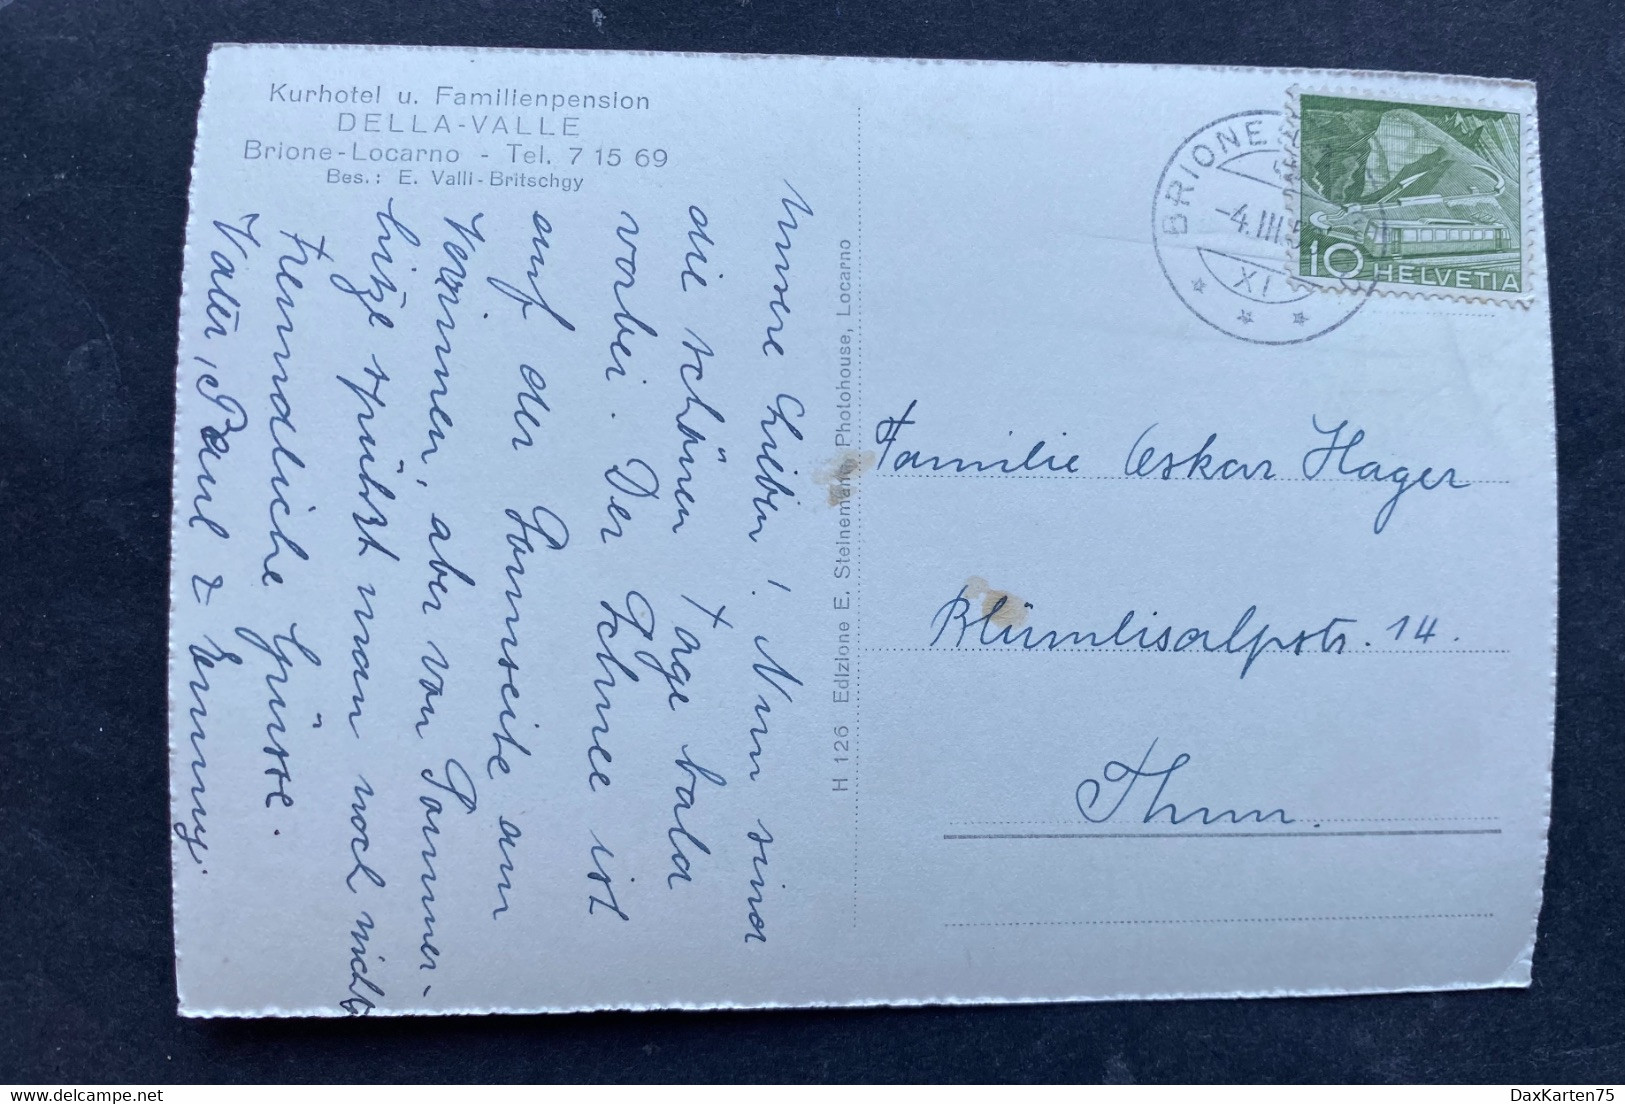 Kurhotel u. Familienpension
DELLA-VALLE
Brione-Locarno - Tel. 7 15 69
Bes.: E. Valli-Britschgy
Unsere Lieben! Nun sind
die schönen Tage bald
vorbei. Der Schnee ist
auf der Sonnseite am
Verrinnen, aber von Sommer-
hitze spührt man noch nichts
Freundliche Grüsse.
Vater, Paul & Emmy.
H 126 Edizione E. Steinemann, Photohouse, Locarno
BRIONE
-4.III.5
XI
10 HELVETIA
Familie Oskar Hager
Blümlisalpstr. 14.
Thun.
DaxKarten75